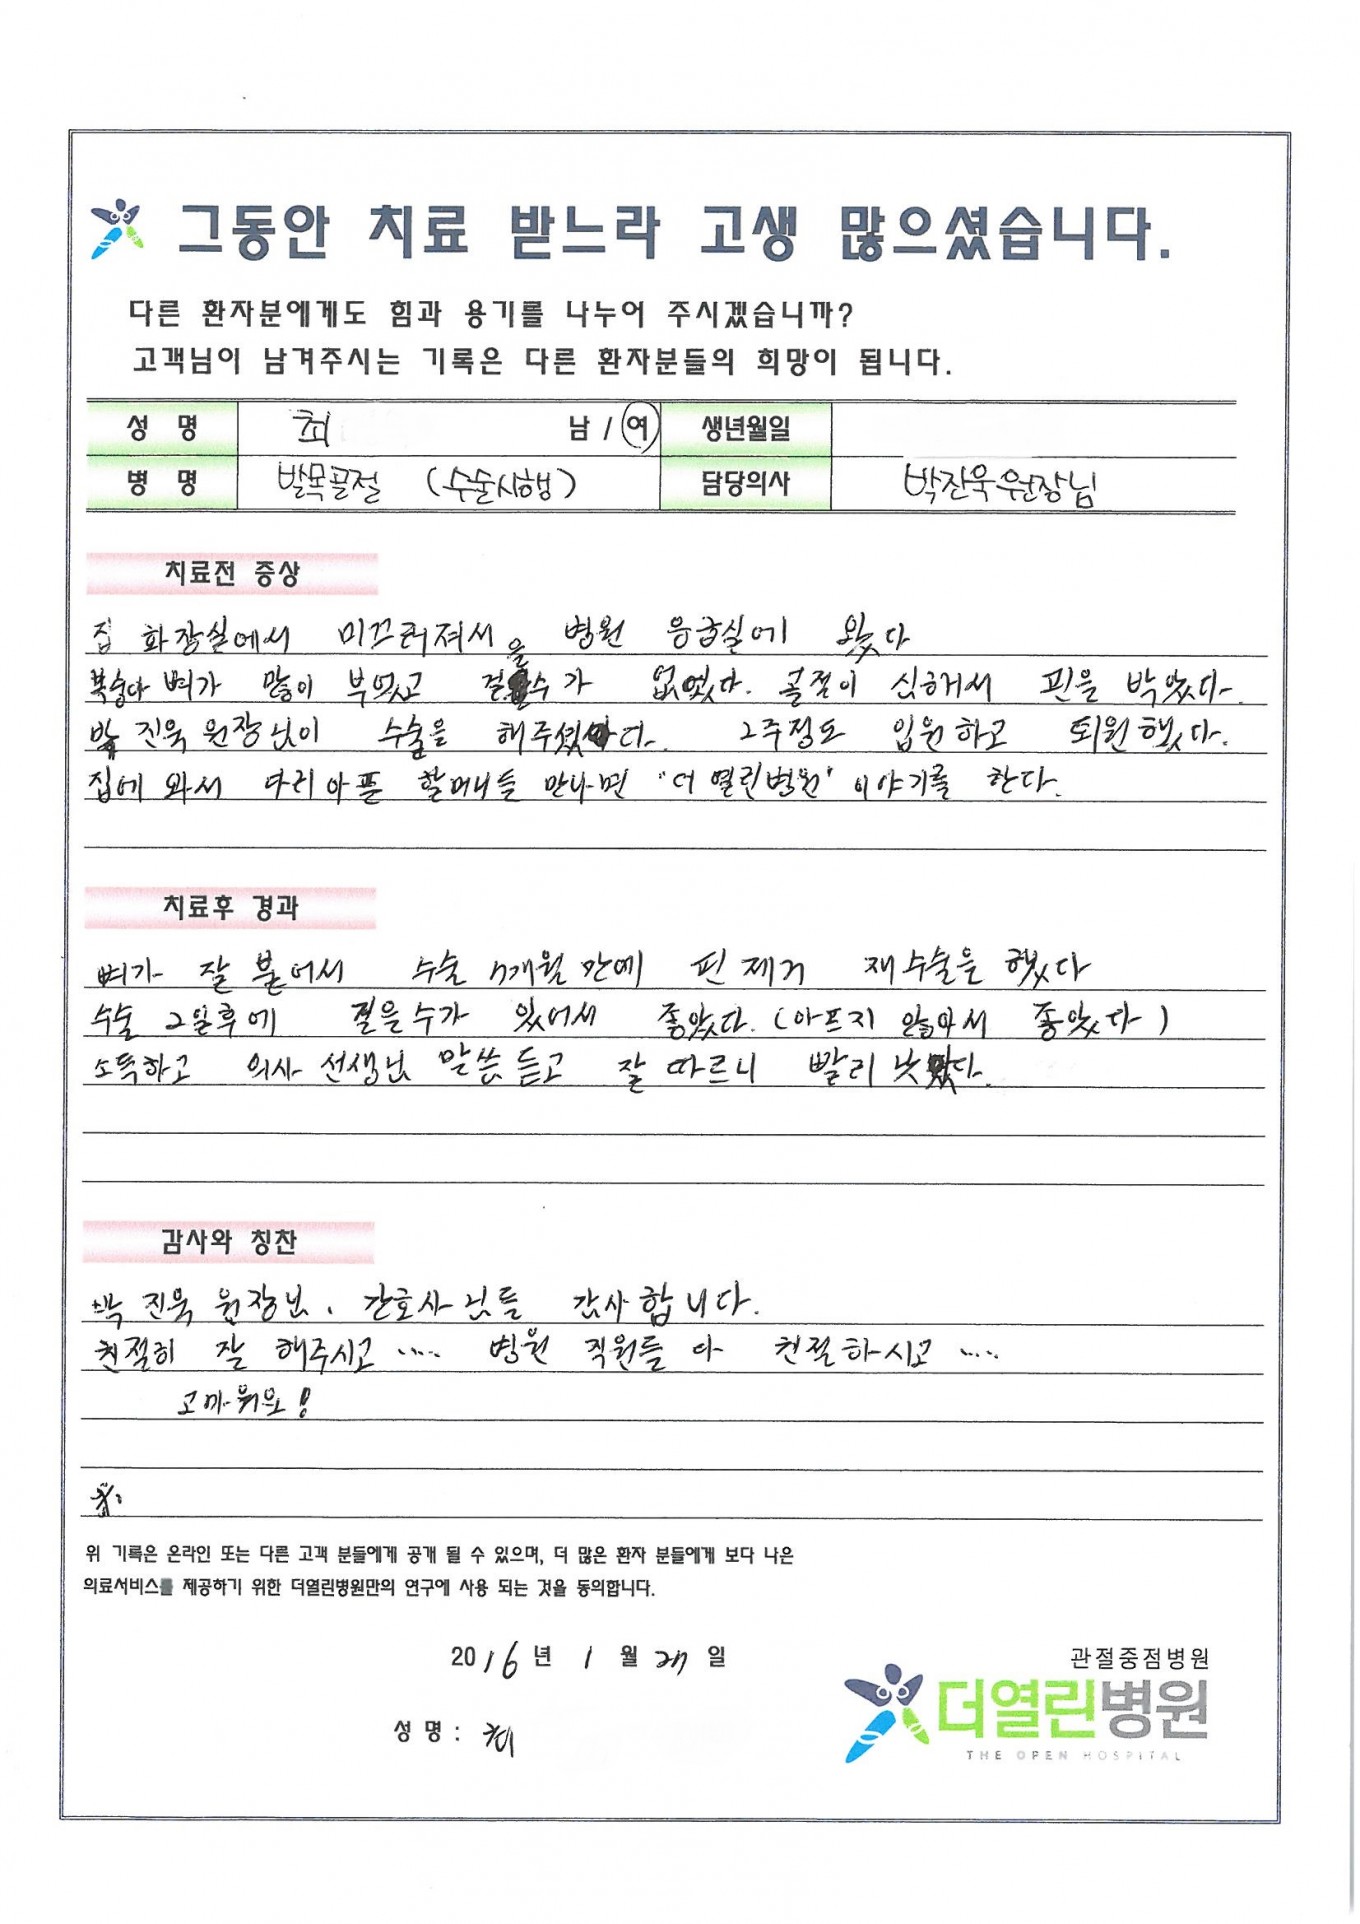 그동안 치료 받느라 고생 많으셨습니다.
다른 환자분에게도 힘과 용기를 나누어 주시겠습니까?
고객님이 남겨주시는 기록은 다른 환자분들의 희망이 됩니다.
성 명 최 남 / 여 생년월일
병 명 발목골절 (수술시행) 담당의사 박진욱원장님
치료전 증상
집 화장실에서 미끄러져서 병원 응급실에 왔다
복숭아 뼈가 많이 부었고 걸을수가 없었다. 골절이 심해서 핀을 박았다.
박진욱 원장님이 수술을 해주셨다. 2주정도 입원하고 퇴원했다.
집에 와서 다리아픈 할머니들 만나면 "더 열린병원" 이야기를 한다.
치료후 경과
뼈가 잘 붙어서 수술 7개월 만에 핀 제거 재수술을 했다
수술 2일후에 걸을수가 있어서 좋았다. (아프지 않아서 좋았다)
소독하고 의사 선생님 말씀 듣고 잘 따르니 빨리 낫았다.
감사와 칭찬
박진욱 원장님, 간호사님들 감사합니다.
친절히 잘 해주시고 ···· 병원 직원들 다 친절하시고 ····
고마워요!
위 기록은 온라인 또는 다른 고객 분들에게 공개 될 수 있으며, 더 많은 환자 분들에게 보다 나은
의료서비스를 제공하기 위한 더열린병원만의 연구에 사용 되는 것을 동의합니다.
2016년 1 월 27 일
성 명 : 최
관절중점병원
더열린병원
THE OPEN HOSPITAL